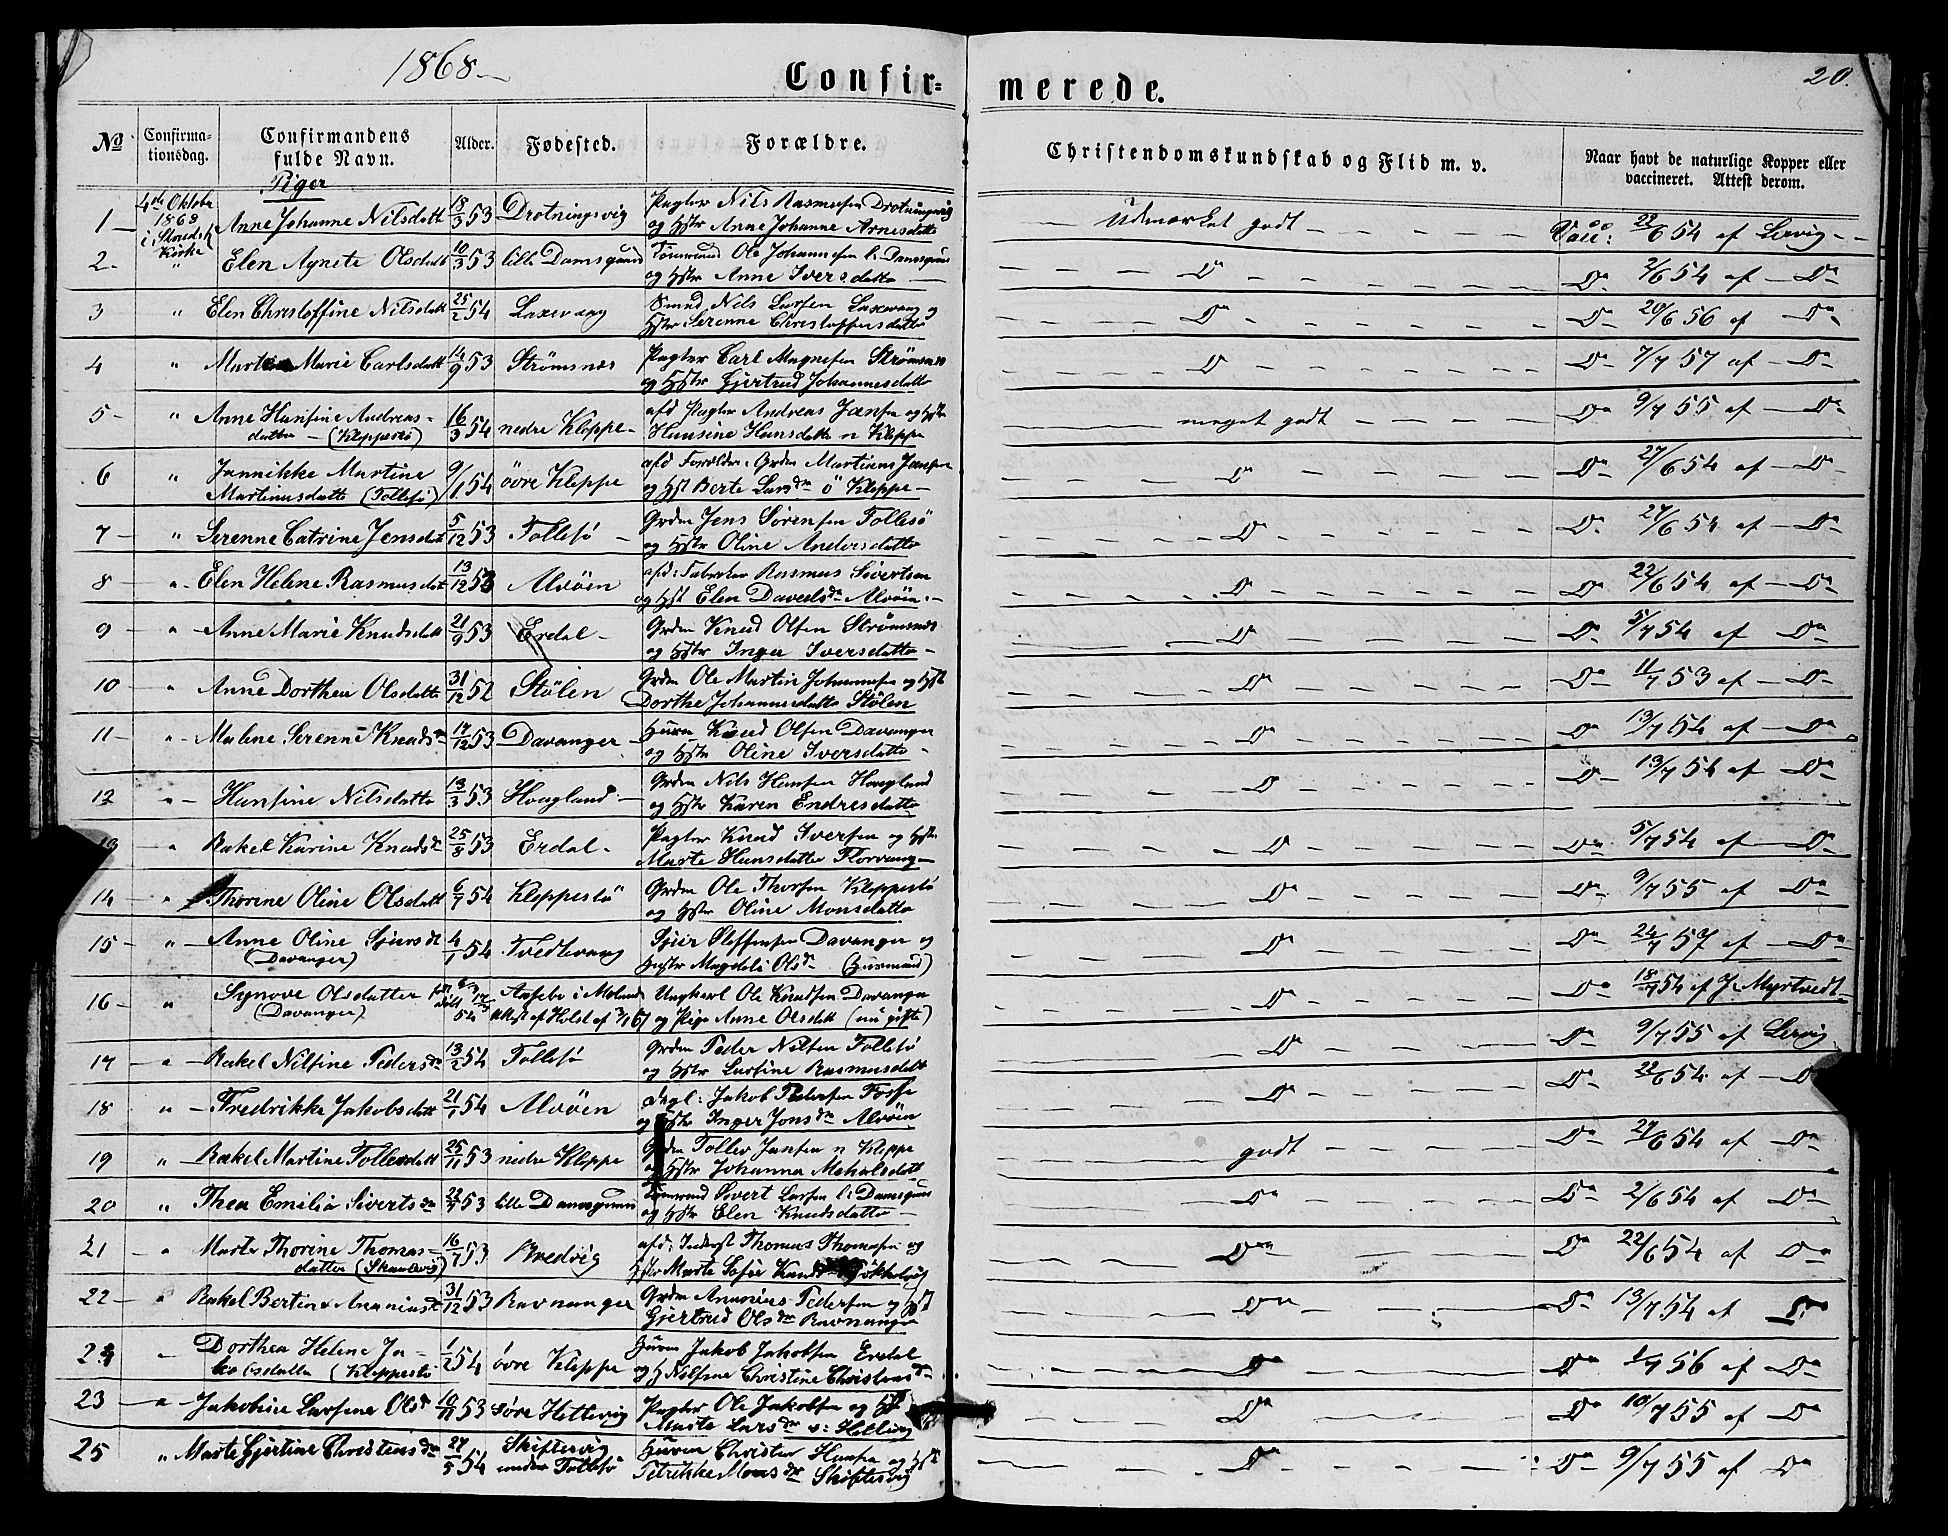 1868
20.
Confirmerede.
No
Confirmationsdag.
Confirmandens fulde Navn.
Alder.
Fødested.
Forældre.
Christendomskundskab og Flid m. v.
Naar havt de naturlige Kopper eller vaccineret. Attest derom.
Piger
1 4de Oktober 1868 i Kirke Anne Johanne Nilsdatt 18/3 53 Drotningsvig Pagter Nils Rasmusen Drotningsvig
og Hstr Anne Johanne Arnesdatter Udmærket godt Vacc: 22/6 54 af Lervig
2 " Elen Agnete Olsdatt 10/3 53 lille Damsgaard Ole Johannesen l. Damsgaard
og Hstr Anne Iversdatter Do Do 2/6 54 af Do
3 " Elen Christoffine Nilsdatt 25/2 54 Laxevaag Smed Nils Larsen Laxevaag og
Hstr Serenne Christophersdatter Do Do 20/6 56 af Do
4 " Marie Carlsdatt 14/9 53 Strømsnes Pagter Carl Magnesen Strømsnes
og Hstr Gjertrud Johannesdatter Do Do 7/7 57 af Do
5 " Anne Hansine Andreas-
datter (Kleppesø) 16/3 54 nedre Kleppe afd Pagter Andreas Jansen og Hstr
Hansine Hansdatter n Kleppe meget godt Do 9/7 55 af Do
6 " Jannikke Martine
Martinusdatt (Follesø) 9/1 54 øvre Kleppe afd Forældre: Grdm Martinus Jansen
og Hst Berte Larsdr ö Kleppe Do Do 27/6 54 af Do
7 " Serenne Catrine Jensdat 5/12 53 Follesø Grdm Jens Sørensen Follesö
og Hstr Oline Andersdatter Do Do 27/6 54 af Do
8 " Elen Helene Rasmusdat 13/12 53 Alvöen afd: Rasmus Sivertsen
og Hst Elen Davedsdr Alvöen Do Do 22/6 54 af Do
9 " Anne Marie Knudsdatt 21/9 53 Erdal Grdm Knud Olsen Strømsnes
og Hstr Inger Iversdatter Do Do 5/7 54 af Do
10 " Anne Dorthea Olsdatter 31/12 52 Stölen Grdm Ole Martin Johannesen og Hst
Dorthe Johannesdatter Stölen Do Do 11/7 53 af Do
11 " Malene Serenne Knudsdr 17/12 53 Davanger Husm Knud Olsen Davanger
og Hstr Oline Iversdatter Do Do 13/7 54 af Do
12 " Hansine Nilsdatter 13/3 53 Haagland Grdm Nils Hansen Haagland
og Hstr Karen Endresdatter Do Do 13/7 54 af Do
13 " Rakel Karine Knudsdr 25/8 53 Erdal Pagter Knud Iversen og Hstr
Marte Hansdatter Florvaag Do Do 5/7 54 af Do
14 " Thorine Oline Olsdatt 6/7 54 Kleppestö Grdm Ole Thorsen Kleppestö
og Hstr Oline Monsdatter Do Do 9/7 55 af Do
15 " Anne Oline Sjursdt
(Davanger) 4/1 54 Tvedtevaag Sjur Steffensen Davanger og
Hstr Magdeli Olsdr (Husmand) Do Do 24/7 57 af Do
16 " Synove Olsdatter
(Davanger) 54 i Meland
Attest af Holst af Ungkarl Ole Knudsen Davanger
og Pige Anne Olsdatt (nu gifte) Do Do 18/7 54 af J. Myrtvedt
17 " Rakel Nilsine Pedersdr 13/2 54 Follesø Grdm Peder Nilsen Follesø
og Hstr Larsine Rasmusdatt Do Do 9/7 55 af Lervig
18 " Fredrikke Jakobsdatt 21/1 54 Alvöen Dagl: Jakob Pedersen Fosse
og Hstr Inger Jonsdr Alvöen Do Do 22/6 54 af Do
19 " Rakel Martine Follevsdatt 25/11 53 nedre Kleppe Grdm Follev Jansen n Kleppe
og Hstr Johanna Mikalsdatt godt Do 27/6 54 af Do
20 " Thea Emilie Sivertsdr 22/7 53 lille Damsgaard Sivert Larsen l: Damsgaard
og Hstr Elen Knudsdatter Do Do 2/6 54 af Do
21 " Marte Thorine Thomas-
datter (Skaalevig) 16/7 53 Bredvig afd: Inderst Thomas Thomasen og
Hstr Marte Sofie Do Do 22/6 54 af Do
22 " Rakel Bertine Ananiasdt 31/12 53 Ravnanger Grdm Ananias Pedersen og Hst
Gjertrud Olsdr Ravnanger Do Do 13/7 54 af Do
24 " Dorthea Helene Ja-
kobsdatter (Kleppestö 1/2 54 øvre Kleppe Husm Jakob Jakobsen Erdal
og H Nilsine Christine Christensdr Do Do 56 af Do
23 " Jakobine Larsine Olsdr 10/11 53 søre Hettevig Pagter Ole Jakobsen og Hst
Marte Larsdr s: Hettevig Do Do 10/7 55 af Do
25 " Marte Gjertine Christensdr 27/5 54 Skiftesvig
under Follesø Husm Christen Hansen og Hst
Petrikke Monsdr Skiftesvig Do Do 9/7 55 af Do